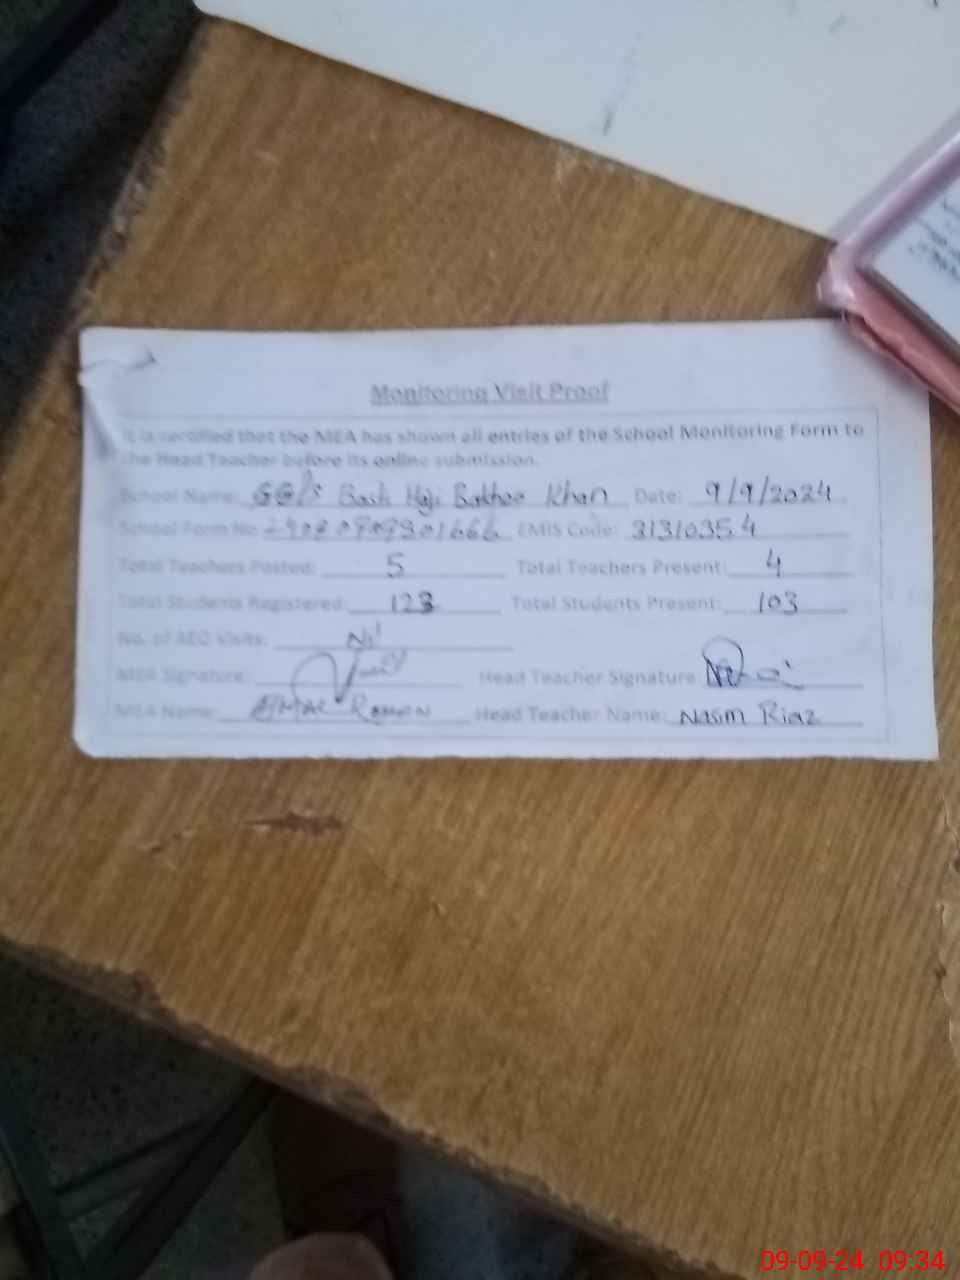 Monitoring Visit Proof
It is certified that the MEA has shown all entries of the School Monitoring Form to
the Head Teacher before its online submission.
School Name: Basti Haji Khan Date: 9/9/2024
School Form No: EMIS Code: 31310354
Total Teachers Posted: 5 Total Teachers Present: 4
Total Students Registered: 123 Total Students Present: 103
No. of AEO Visits: Nil
MEA Signature: Head Teacher Signature
MEA Name: Head Teacher Name: Nasim Riaz
09-09-24 09:34